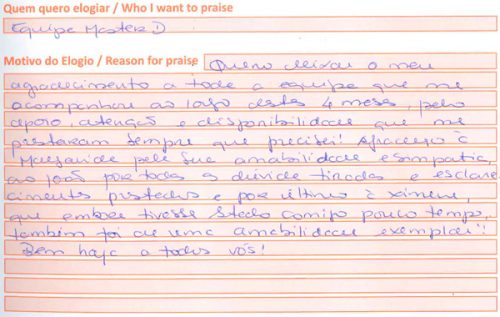 Quem quero elogiar / Who I want to praise
Equipe Master D
Motivo do Elogio / Reason for praise Quero deixar o meu
agradecimento a toda a equipe que me
acompanhou ao logo destes 4 meses, pelo
apoio, atenção e disponibilidade que me
prestaram sempre que precisei! Agradeço à
pela sua amabilidade e simpatia,
ao João por todas as dúvidas tiradas e esclare
cimentos prestados e por último à Ximene,
que embora tivesse stado comigo pouco tempo,
também foi de uma amabilidade exemplar!
Bem haja a todos vós!